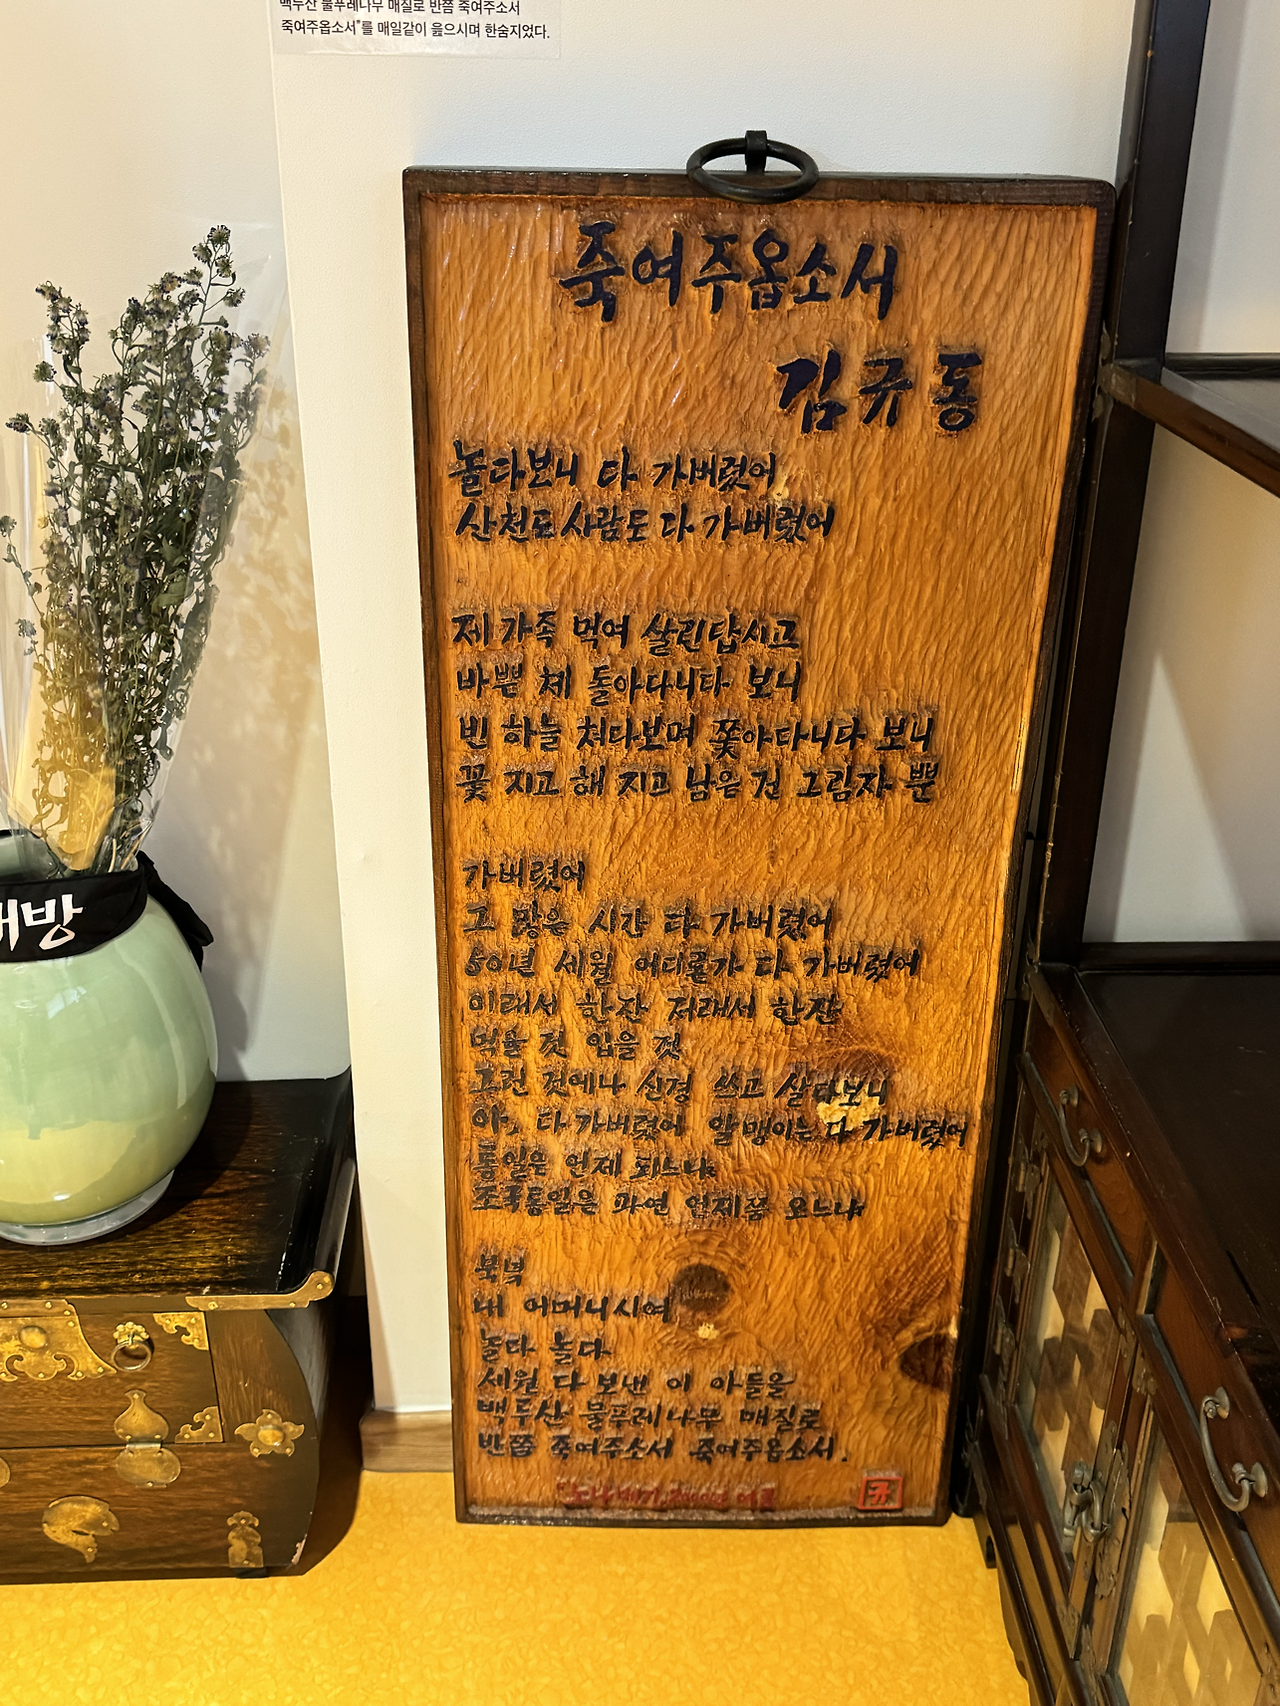 백두산 물푸레나무 매질로 반쯤 죽여주소서
죽여주옵소서"를 매일같이 읊으시며 한숨지었다.
죽여주옵소서
김규동
놀다보니 다 가버렸어
산천도 사람도 다 가버렸어
제 가족 먹여 살린답시고
바쁜 체 돌아다니다 보니
빈 하늘 쳐다보며 쫓아다니다 보니
꽃 지고 해 지고 남은 건 그림자 뿐
가버렸어
그 많은 시간 다 가버렸어
50년 세월 어디론가 다 가버렸어
이래서 한잔 저래서 한잔
먹을 것 입을 것
그런 것에나 신경 쓰고 살다보니
아, 다 가버렸어 알맹이는 다 가버렸어
통일은 언제 되느냐
조국통일은 과연 언제쯤 오느냐
북녘
내 어머니시여
놀다 놀다
세월 다 보낸 이 아들을
백두산 물푸레나무 매질로
반쯤 죽여주소서 죽여주옵소서.
방